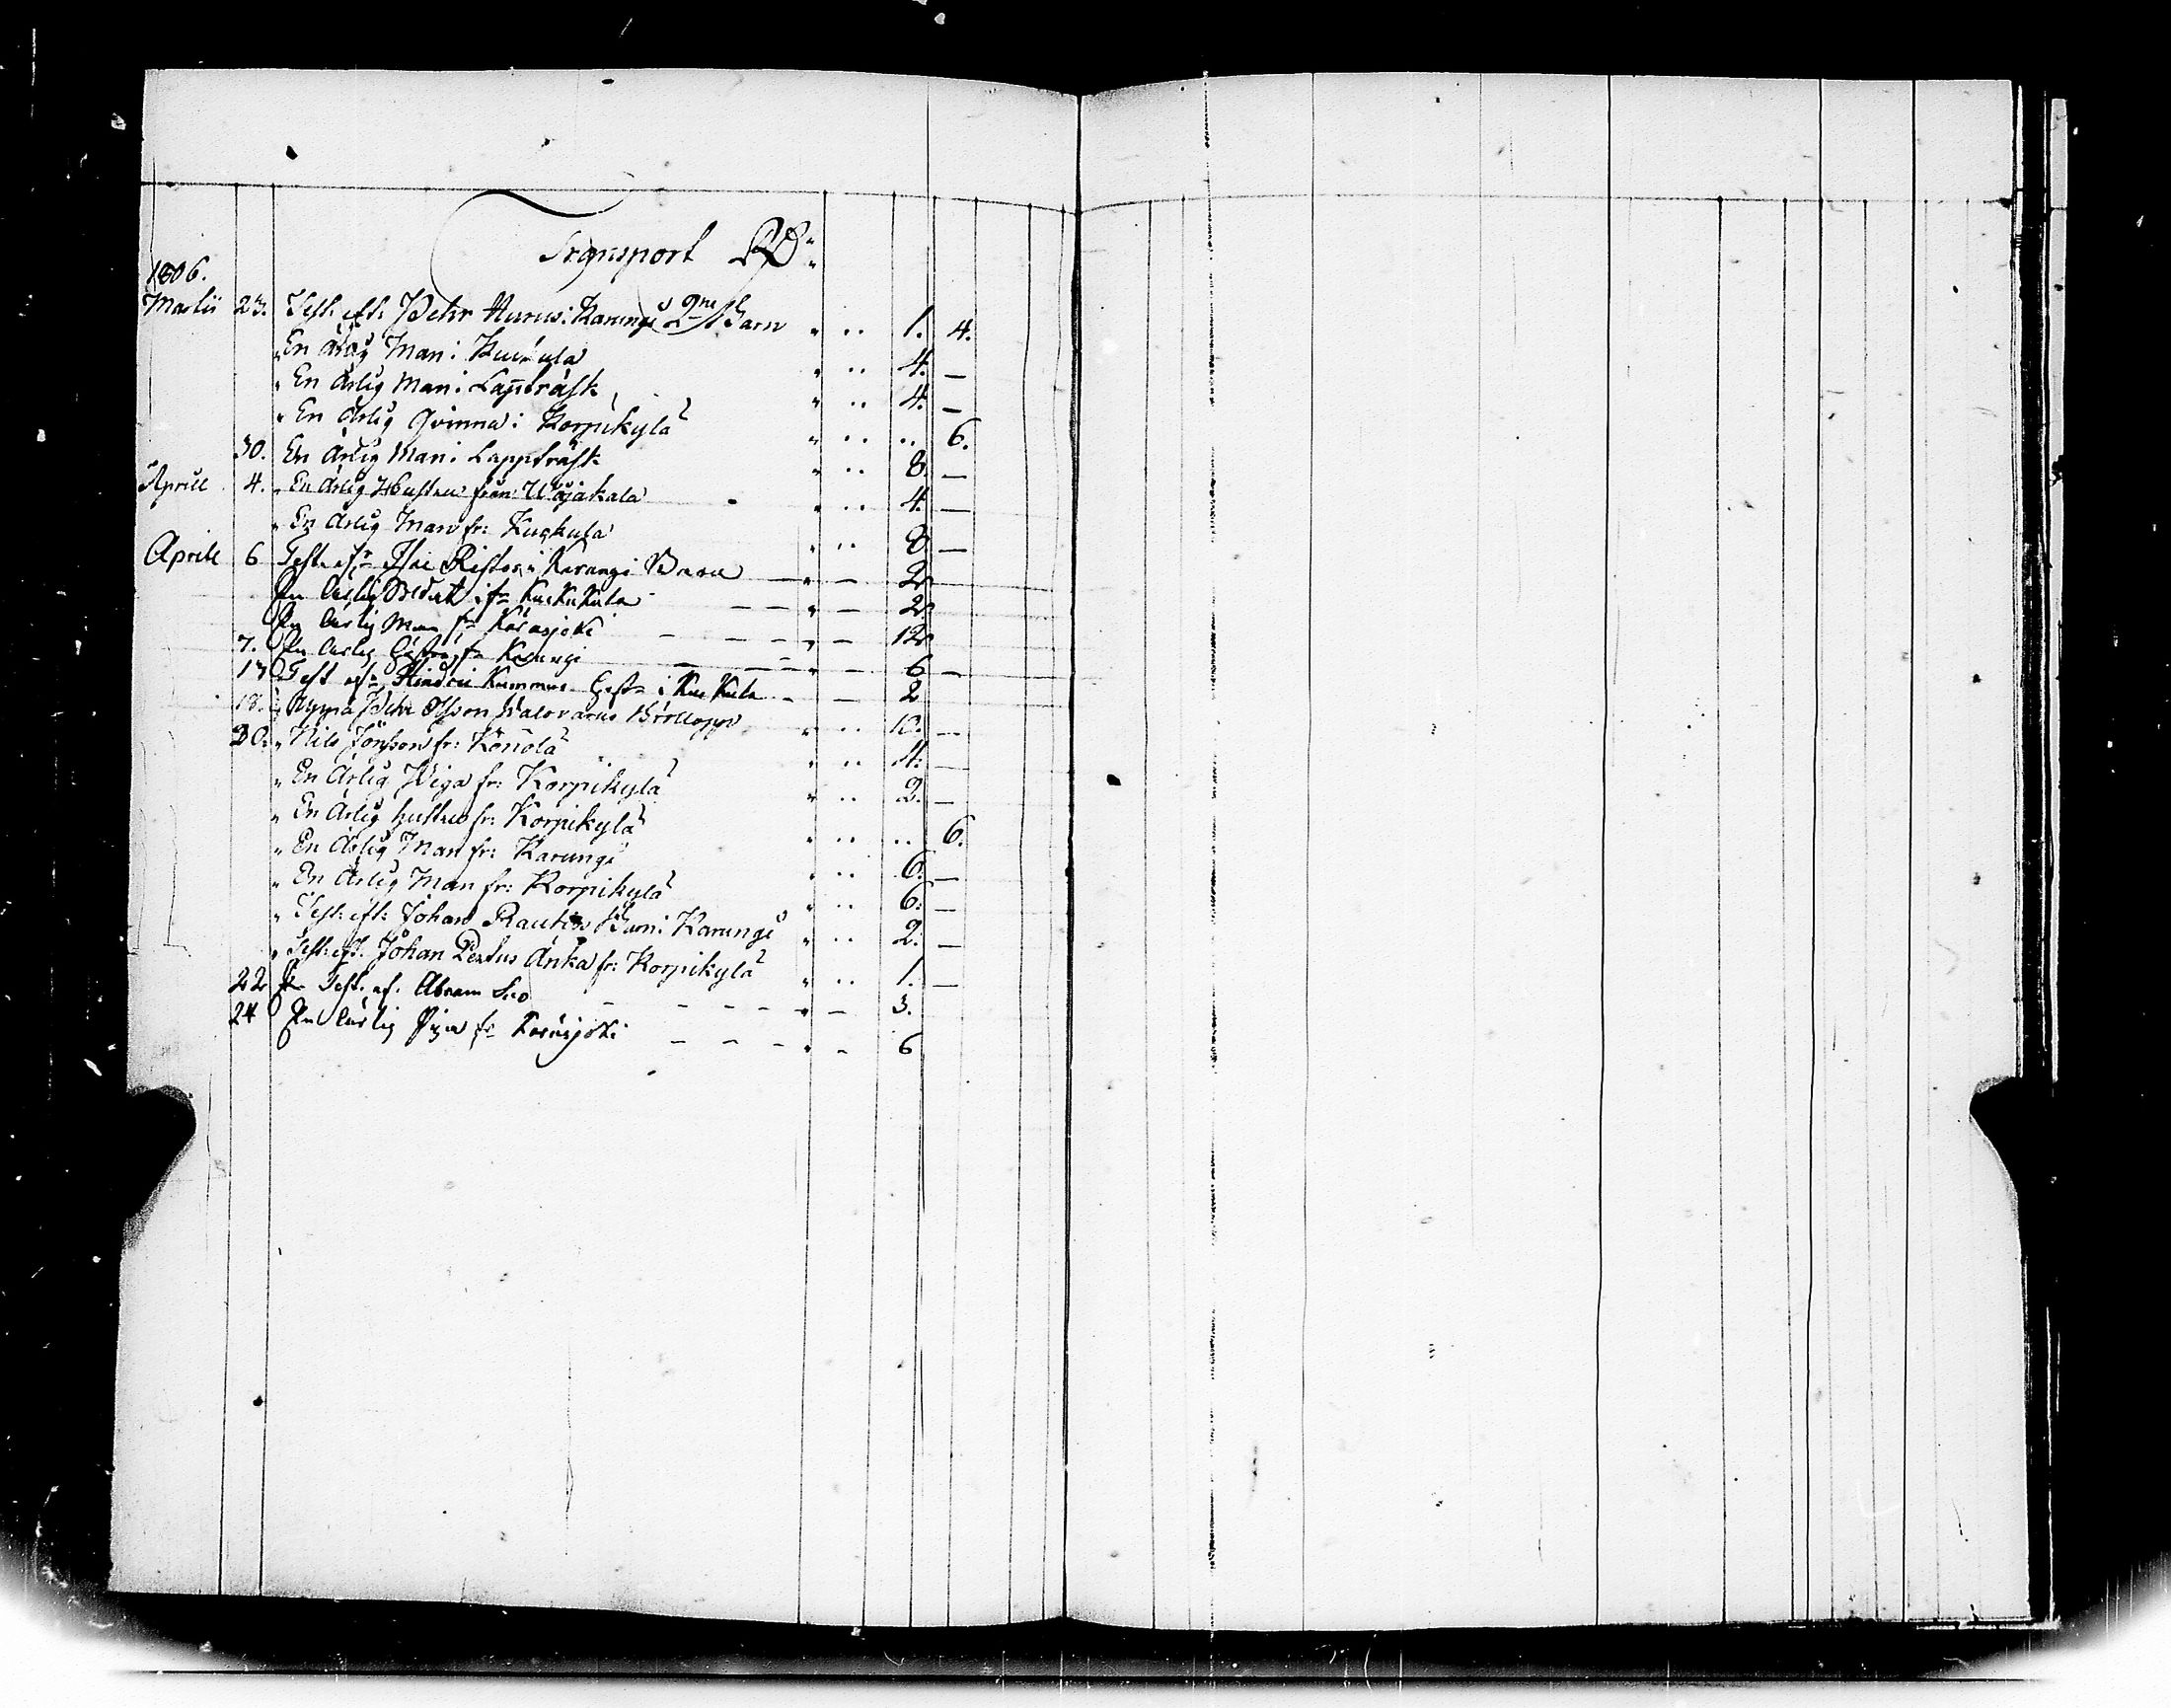 Transport RD
1806.
Martii 23. Test: eft: Pehr Hurus: Karungi 2ne Barn " .. 1. 4.
" En ärlig Man i Kuckula " .. 4. —
" En Ärlig Man i Lappträsk " .. 4. —
" En Ärlig Qvinna i Korpikylä " .. .. 6.
30. En Ärlig Man i Lappträsk " .. 8. —
Aprill 4. " En Ärlig Hustru från Wojakala " .. 4. —
" En Ärlig Man fr: Kuckula " .. 8 —
Aprill 6 Test. ef. Isac Ristos i Karungi Barn — " — 2
En ärlig fr Kuckula — — " — 2
En ärlig Man fr Karasjoki — — — " — 12
7. En ärlig fr Karungi — — — " — 6 —
17 Test ef. Hindric Kummus i Kuckula — — 2
18. " Uppå Pehr Olsson Walovaras Bröllopp " .. 12. —
20. " Nils Jönsson fr: Könölä " .. 4: —
" En Ärlig Piga fr: Korpikylä " .. 2. —
" En Ärlig hustru fr: Korpikylä " .. .. 6.
" En Ärlig Man fr: Karungi " .. 6. —
" En Ärlig Man fr: Korpikylä " .. 6. —
" Test: eft: Johan Rautios Barn i Karungi " .. 2. —
" Test: eft: Johan Pertus Änka fr: Korpikylä " .. 1. —
22 Test. ef. Abram — — — — " — 3.
24 En ärlig Piga fr Karasjoki — — — " — 6